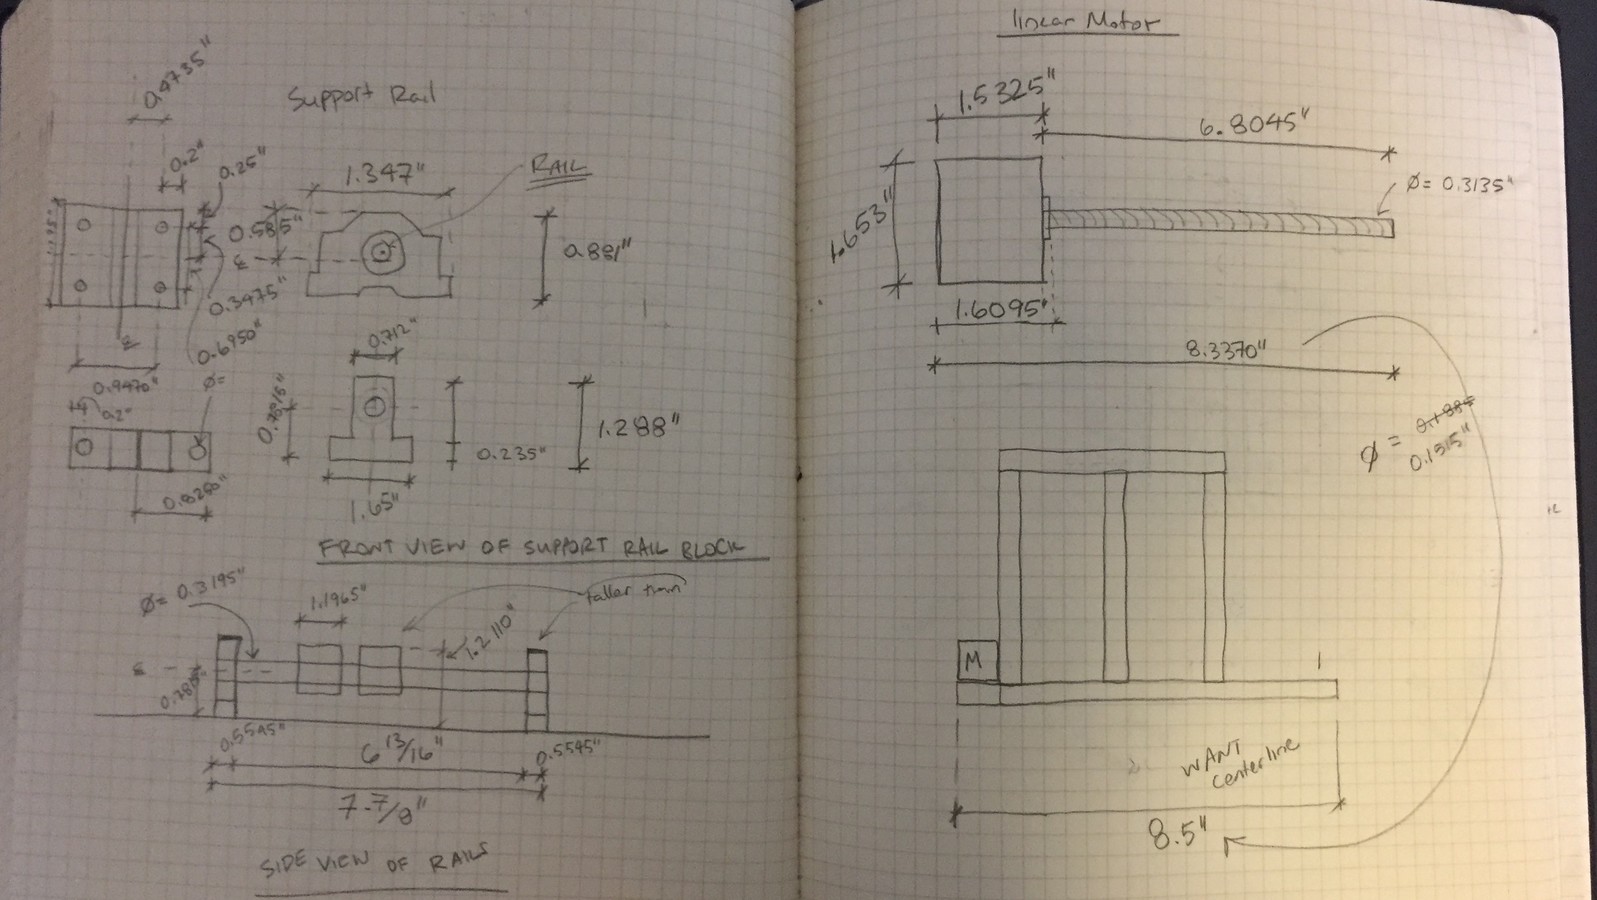 Support Rail
0.4735"
0.2"
0.25"
1.347"
RAIL
0.585"
0.881"
0.3475"
0.6950"
0.9470"
0.2"
Ø=
0.712"
1.288"
0.235"
0.8250"
1.65"
FRONT VIEW OF SUPPORT RAIL BLOCK
Ø= 0.3195"
1.1965"
taller than
1.2110"
0.5545"
6 13/16"
0.5545"
7-7/8"
SIDE VIEW OF RAILS
linear Motor
1.5325"
6.8045"
Ø= 0.3135"
1.653"
1.6095"
8.3370"
Ø =
0.1515"
M
WANT
centerline
8.5"